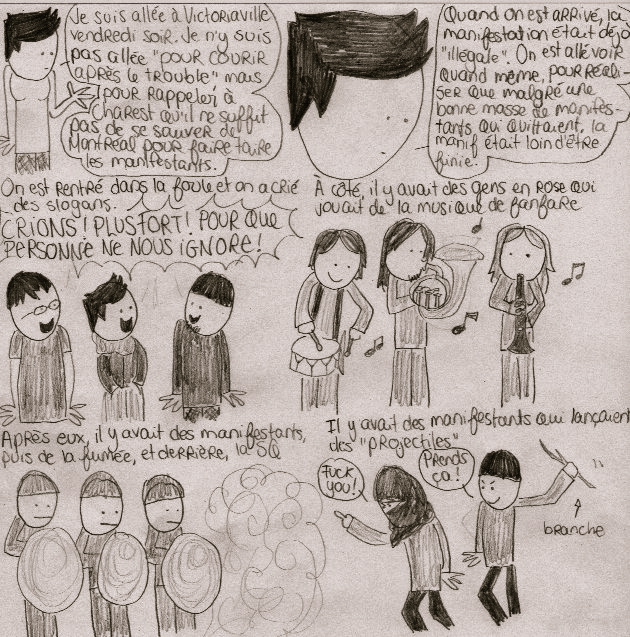 Je suis allée à Victoriaville
vendredi soir. Je n'y suis
pas allée "pour courir
après le trouble" mais
pour rappeler à
Charest qu'il ne suffit
pas de se sauver de
Montréal pour faire taire
les manifestants.
Quand on est arrivé, la
manifestation était déjà
"illégale". On est allé voir
quand même, pour réali-
ser que malgré une
bonne masse de manifes-
tants qui quittaient, la
manif était loin d'être
finie.
On est rentré dans la foule et on a crié
des slogans.
CRIONS! PLUS FORT! POUR QUE
PERSONNE NE NOUS IGNORE!
À côté, il y avait des gens en rose qui
jouait de la musique de fanfare
Après eux, il y avait des manifestants,
puis de la fumée, et derrière, la SQ
Il y avait des manifestants qui lançaient
des "projectiles"
Fuck
you!
Prends
ça!
branche